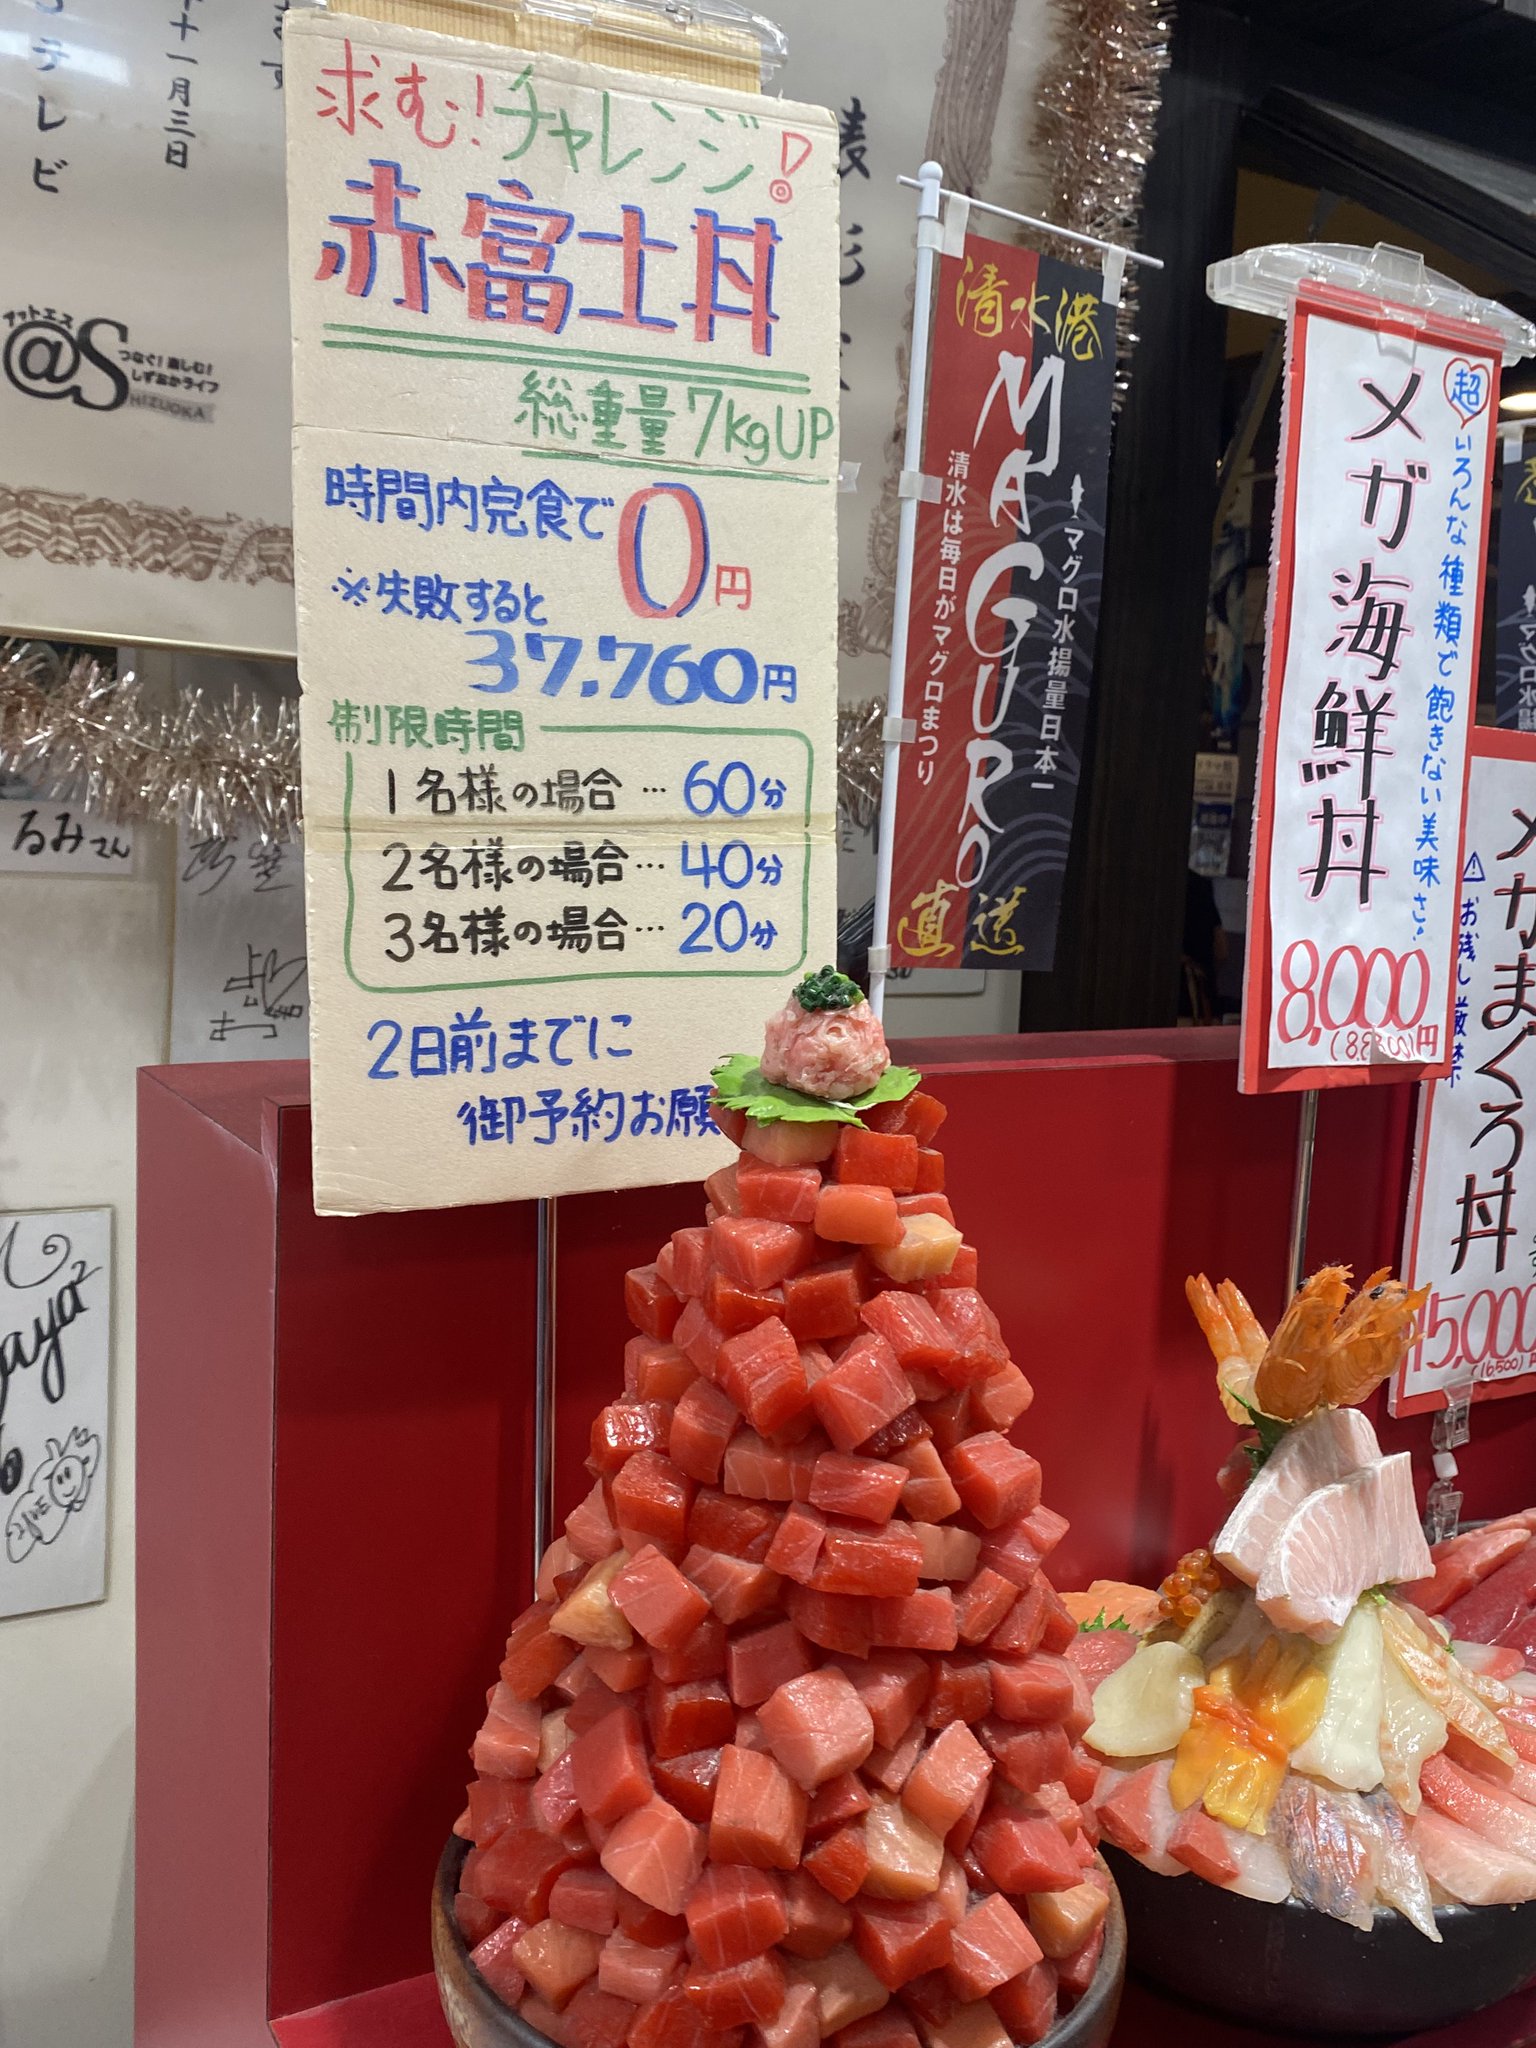 求む!チャレンジ!
赤富士丼
総重量7kgUP
時間内完食で0円
※失敗すると
37.760円
制限時間
1名様の場合…60分
2名様の場合…40分
3名様の場合…20分
2日前までに
御予約お願
清水港
MAGURO
直送
マグロ水揚量日本一
清水は毎日がマグロまつり
超
いろんな種類で飽きない美味さ!
メガ海鮮丼
8,000
円
メガまぐろ丼
お残し厳禁
15,000
(16500)円
テレビ
十一月三日
アットエス
@S
つなぐ!楽しむ!
しずおかライフ
SHIZUOKA
るみさん